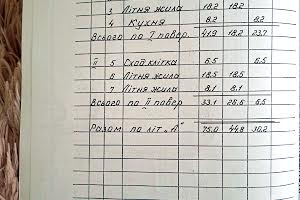 3 Літня жила 18.2 18.2
4 Кухня 8.2 8.2
Всього по І повер. 41.9 18.2 23.7
ІІ 5 Сход клітка 6.5 6.5
6 Літня жила 18.5 18.5
7 Літня жила 8.1 8.1
Всього по ІІ повер 33.1 26.6 6.5
Разом по літ „А" 75.0 44.8 30.2